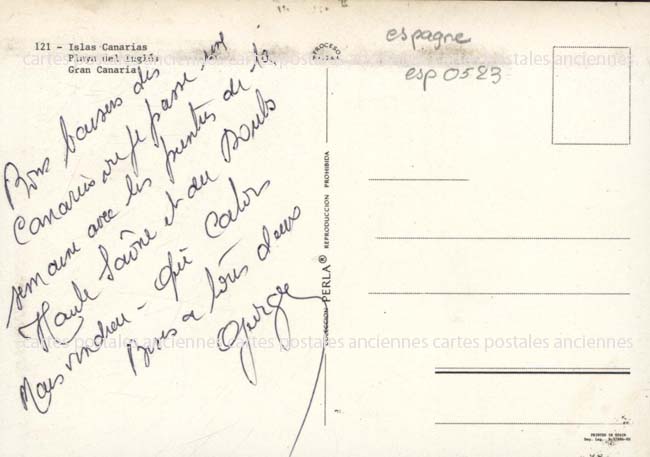 121 - Islas Canarias
Playa del Inglés
Gran Canaria
Bons baisers des
Canaries où je passe une
semaine avec les peintres de la
Haute Saône et du Doubs
Mais vindieu - Qué Calor
Bises à tous deux
espagne
esp 0523
PROCESO
COLECCION PERLA® REPRODUCCION PROHIBIDA
cartes postales anciennes cartes postales anciennes cartes postales anciennes
cartes postales anciennes cartes postales anciennes cartes postales anciennes
PRINTED IN SPAIN